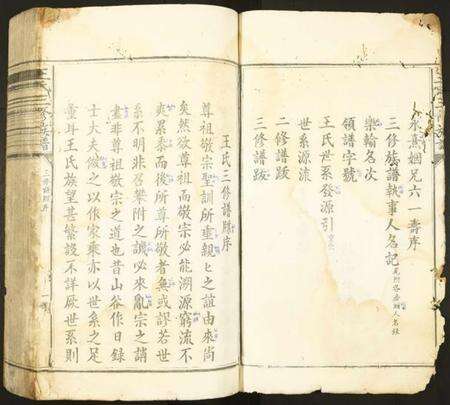 永熹姻兄六一壽序
三修族譜執事人名記
樂輸名次
領譜字號
王氏世系發源引
世系源流
二修譜跋
三修譜跋
王氏三修譜牒序
尊祖敬宗聖訓所垂親匕之誼由來尚
矣然欲尊祖而敬宗必能溯源窮流不
爽累黍而後所尊所敬者無或謬若世
系不明非召棄附之譏必來亂宗之誚
盡非尊祖敬宗之道也昔山谷作日錄
士大夫倣之以作家乘亦以世系之足
重耳王氏族望甚繁設不詳厥世系則
三修譜牒序